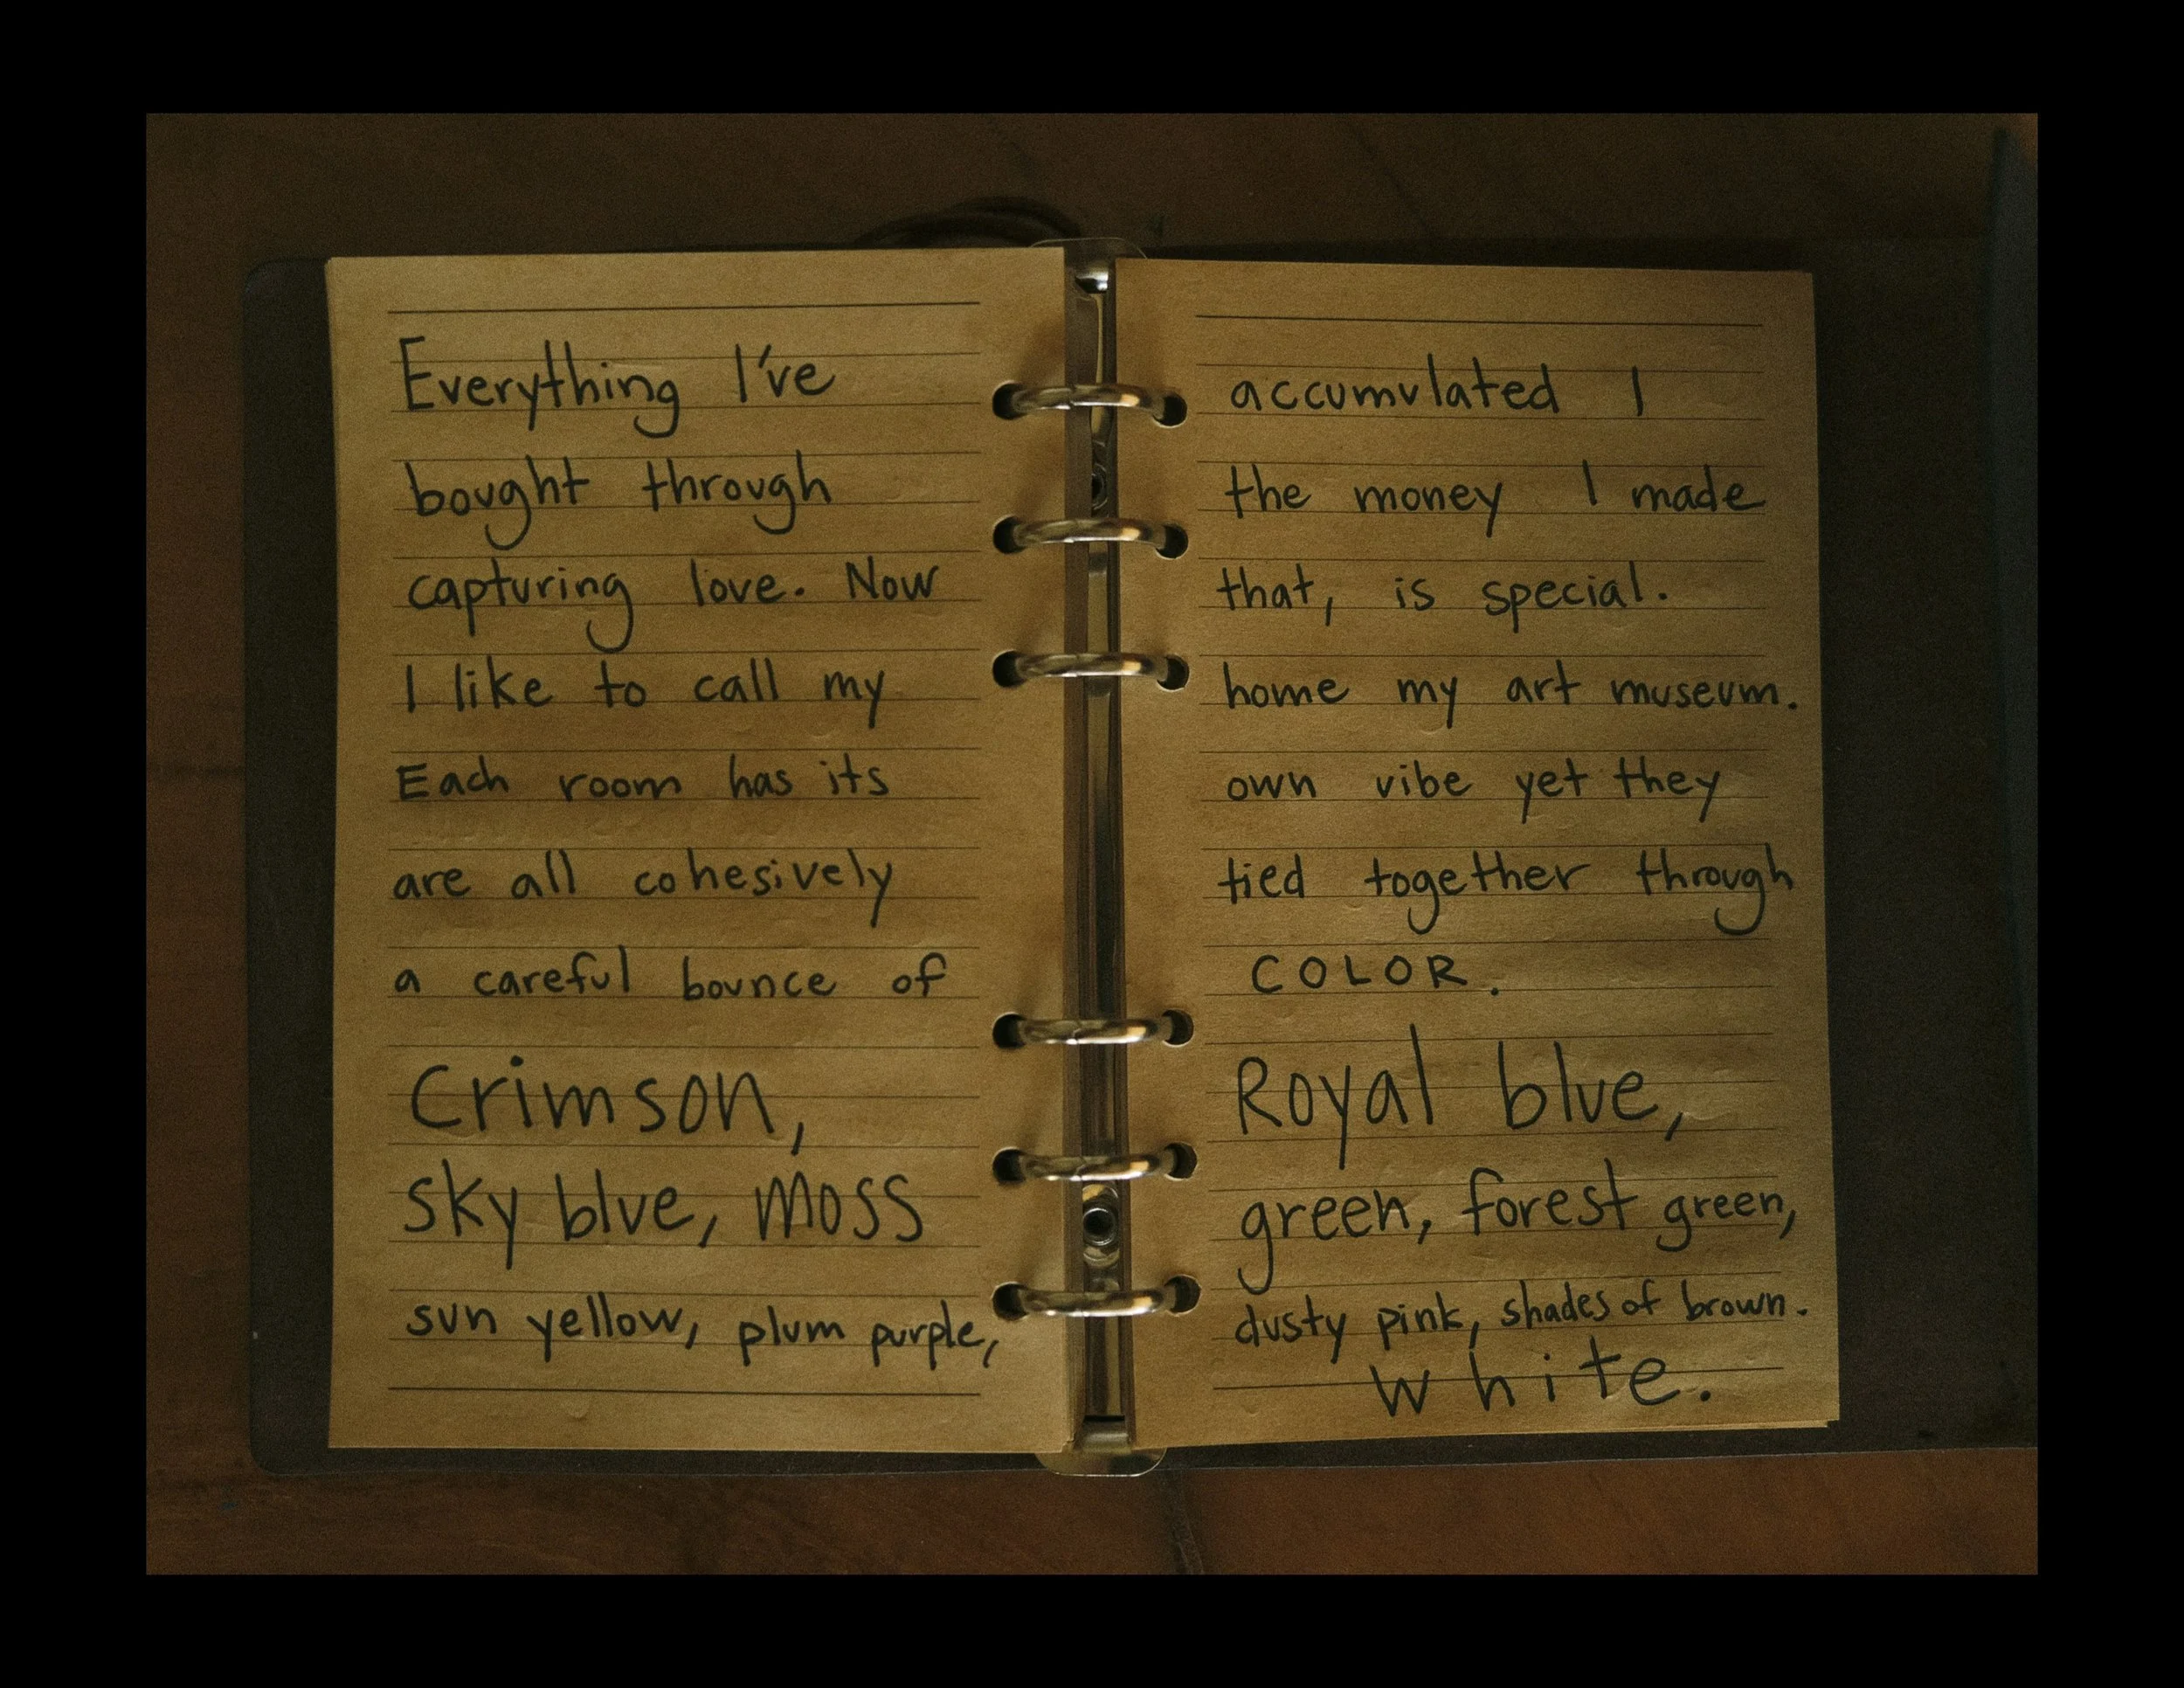 Everything I've accumulated I
bought through the money I made
capturing love. Now that, is special.
I like to call my home my art museum.
Each room has its own vibe yet they
are all cohesively tied together through
a careful bounce of COLOR.
Crimson, Royal blue,
sky blue, moss green, forest green,
sun yellow, plum purple, dusty pink, shades of brown.
white.